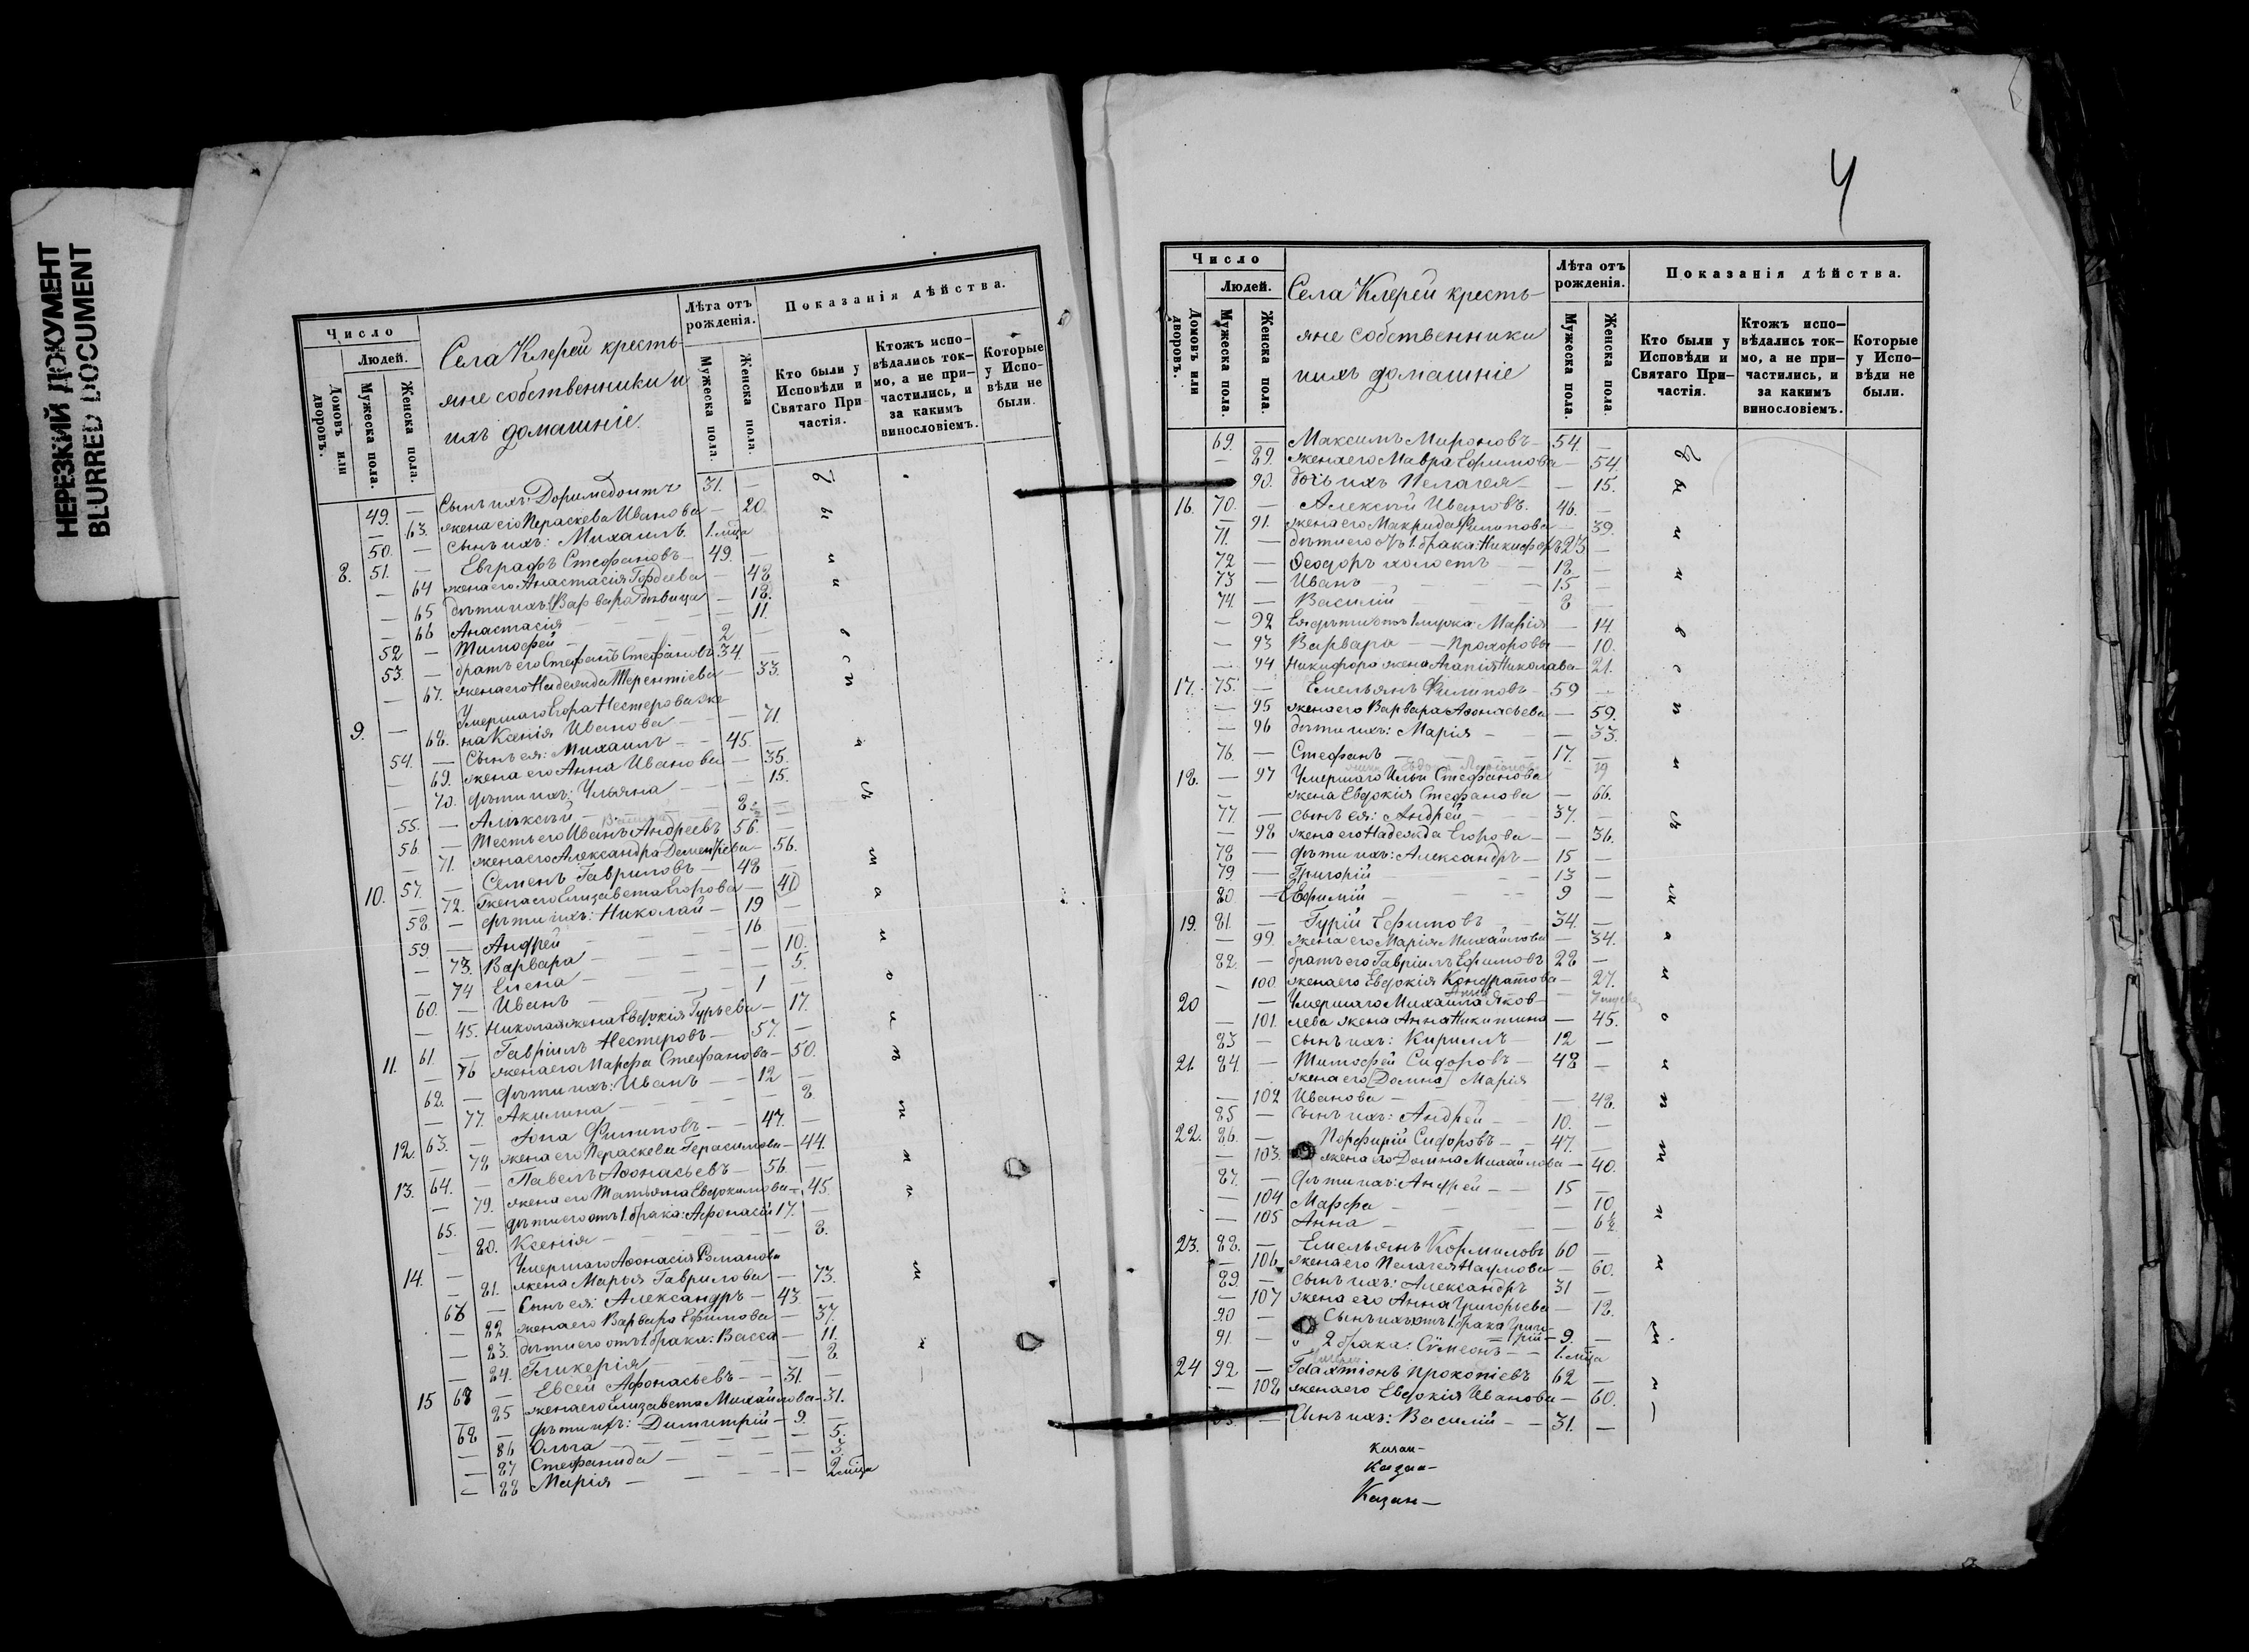 НЕРЕЗКИЙ ДОКУМЕНТ
BLURRED DOCUMENT
Число
Людей.
Домовъ или дворовъ.
Мужеска пола.
Женска пола.
Села Клерей кресть-
яне собственники и
ихъ домашніе.
Лѣта отъ рожденія.
Мужеска пола.
Женска пола.
Показанія дѣйства.
Кто были у Исповѣди и Святаго При-частія.
Ктожъ испо-вѣдались ток-мо, а не при-частились, и за какимъ винословіемъ.
Которые у Испо-вѣди не были.
49. — Сынъ ихъ: Доримедонтъ 31. —
— 63. жена его Параскева Иванова — 20.
50. — Сынъ ихъ: Михаилъ. 1. мца
8. 51. — Евграфъ Стефановъ — 49. —
— 64 жена его Анастасія Гордеева — 48
— 65 дѣти ихъ: Варвара дѣвица — 18.
— 66 Анастасія — 11.
52 — Тимофей — 2 —
53. — братъ его Стефанъ Стефановъ 34. —
— 67. жена его Надежда Терентіева — 33.
Умершаго Егора Нестерова же-
9. — 68. на Ксенія Иванова — 71.
54. — Сынъ ея: Михаилъ — 45. —
— 69. жена его Анна Иванова — 35.
— 70. дѣти ихъ: Ульяна — 15.
55. — Алексѣй — 8 —
56 — Тесть его Иванъ Андреевъ 56. —
— 71. жена его Александра Дементьева — 56.
10. 57. — Семенъ Гавриловъ — 48 —
— 72. жена его Елизавета Егорова — 40
58. — дѣти ихъ: Николай — 19 —
59 — Андрей 16 —
— 73. Варвара — 10.
— 74 Елена — 5.
60. — Иванъ — 1 —
— 45. Николая жена Евдокія Гурьева — 17.
11. 61. — Гавріилъ Нестеровъ — 57. —
— 76 жена его Марфа Стефанова — 50.
62. — дѣти ихъ: Иванъ — 12 —
— 77. Акилина — 8.
12. 63. — Іона Филиповъ — 47. —
— 78 жена его Параскева Герасимова — 44.
13. 64. — Павелъ Афонасьевъ — 56. —
— 79. жена его Татьяна Евдокимова — 45
65. — дѣти его отъ 1. брака: Афонасій 17. —
— 80. Ксенія — 8.
Умершаго Афонасія Романова
14. — 81. жена Марья Гаврилова — 73.
66 — Сынъ ея: Александръ — 43. —
— 82 жена его Варвара Ефимова — 37.
— 83. дѣти его отъ 1. брака: Васса — 11.
— 84. Гликерія — 8.
15 67 — Евсей Афонасьевъ — 31. —
— 85 жена его Елизавета Михайлова — 31.
68 — дѣти ихъ: Димитрій — 9. —
— 86 Ольга — 5.
— 87 Стефанида — 3.
— 88 Марія — 2 мца
4
Число
Людей.
Домовъ или дворовъ.
Мужеска пола.
Женска пола.
Села Клерей кресть-
яне собственники
ихъ домашніе
Лѣта отъ рожденія.
Мужеска пола.
Женска пола.
Показанія дѣйства.
Кто были у Исповѣди и Святаго При-частія.
Ктожъ испо-вѣдались ток-мо, а не при-частились, и за какимъ винословіемъ.
Которые у Испо-вѣди не были.
69. — Максимъ Мироновъ — 54. —
— 89. жена его Мавра Ефимова — 54.
90. дочь ихъ Пелагея — 15.
16. 70. — Алексѣй Ивановъ. 46. —
— 91. жена его Макрида Филипова — 39.
71. — дѣти его отъ 1. брака: Никифоръ 23 —
72 — Ѳеодоръ холостъ — 18 —
73 — Иванъ — 15 —
74. — Василій — 8 —
— 92 Ея дѣти отъ 1 мужа: Марія — 14.
— 93 Варвара — Прохоровы — 10.
— 94 Никифора жена Агапія Николаева — 21.
17. 75. — Емельянъ Филиповъ — 59 —
— 95 жена его Варвара Афонасьева — 59.
— 96 дѣти ихъ: Марія — 33.
76. — Стефанъ — 17. —
18. — 97 Умершаго Ильи Стефанова
жена Евдокія Стефанова — 66.
77. — сынъ ея: Андрей 37. —
— 98 жена его Надежда Егорова — 36.
78 — дѣти ихъ: Александръ — 15 —
79. — Григорій — 13 —
80. — Ефимій — 9 —
19. 81. — Гурій Ефимовъ 34. —
— 99. жена его Марія Михайлова — 34.
82. — братъ его Гавріилъ Ефимовъ 28 —
— 100 жена его Евдокія Кондратова — 27.
20 — Умершаго Михаила Яков-
— 101. лева жена Анна Никитина — 45.
83 — сынъ ихъ: Кириллъ 12 —
21. 84. — Тимофей Сидоровъ — 48 —
жена его [Домна] Марія
— 102 Иванова — 48.
85 — сынъ ихъ: Андрей — 10. —
22. 86. — Порфирій Сидоровъ — 47. —
— 103. жена его Домна Михайлова — 40.
87. — Дѣти ихъ: Андрей — 15 —
— 104 Марфа — 10.
— 105 Анна — 6½
23. 88. — Емельянъ Кормиловъ 60 —
— 106 жена его Пелагея Наумова — 60.
89. — сынъ ихъ: Александръ 31 —
— 107 жена его Анна Григорьева — 18.
90 — Сынъ ихъ отъ 1. брака Григо-
рій — 9. —
91. — „ 2 брака: Сѵмеонъ — 1. мца
24 92. — Галактіонъ Прокопіевъ 62 —
— 108 жена его Евдокія Иванова — 60.
— Сынъ ихъ: Василій — 31. —
Казан—